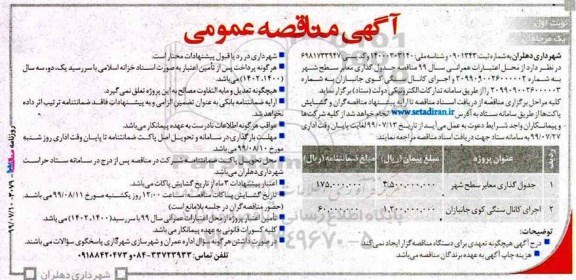 آگهی مناقصه عمومی
نوبت اول
شهرداری دهلران به شماره ثبت ۰۹۰۱۳۴۳ و شناسه ملی ۱۴۰۰۲۰۳۱۴۰ و کدپستی ۶۹۸۱۷۳۳۹۴۷
در نظر دارد از محل اعتبارات عمرانی سال ۹۹ مناقصه جدول گذاری معابر سطح شهر
به شماره ۲۰۹۹۰۹۰۰۲۶۰۰۰۰۰۲ و اجرای کانال سنگی کوی جانبازان به شماره
۲۰۹۹۰۹۰۰۲۶۰۰۰۰۰۳ را از طریق سامانه تدارکات الکترونیکی دولت (ستاد) برگزار نماید.
کلیه مراحل برگزاری مناقصه از دریافت اسناد مناقصه تا ارائه پیشنهاد مناقصه گران و گشایش
پاکت‌ها از طریق سامانه ستاد به آدرس www.setadiran.ir انجام خواهد شد از کلیه شرکت‌ها
و پیمانکاران واجد شرایط دعوت به عمل می‌آید از تاریخ ۹۹/۰۷/۱۳ لغایت پایان وقت اداری
۹۹/۰۷/۲۷ به سامانه ستاد جهت دریافت اسناد مناقصه مراجعه نمایند.
ردیف عنوان پروژه مبلغ پیمان (ریال) مبلغ ضمانتنامه (ریال)
۱ جدول گذاری معابر سطح شهر ۳٫۵۰۰٫۰۰۰٫۰۰۰ ۱۷۵٫۰۰۰٫۰۰۰
۲ اجرای کانال سنگی کوی جانبازان ۱٫۲۰۰٫۰۰۰٫۰۰۰
توضیحات:
درج آگهی هیچگونه تعهدی برای دستگاه مناقصه گزار ایجاد نمی‌کند
هزینه چاپ آگهی به عهده برندگان مناقصه می‌باشد
شهرداری در رد یا قبول پیشنهادات مختار است
هر گونه پرداخت پس از تأمین اعتبار به صورت اسناد خزانه اسلامی با سررسید یک، دو، سه سال
(۱۴۰۲،۱۴۰۰) می‌باشد.
هیچگونه تعدیل و مابه التفاوت مصالح به این پروژه تعلق نمی‌گیرد.
ارایه ضمانتنامه بانکی به عنوان تضمین الزامی و به پیشنهادات فاقد ضمانتنامه ترتیب اثر داده
نخواهد شد.
عواقب هرگونه اطلاعات نادرست به عهده پیمانکار می‌باشد.
مهلت بارگذاری در سامانه و تحویل اصل پاکت ضمانتنامه تا پایان وقت اداری روز شنبه
مورخ ۹۹/۰۸/۱۰ می‌باشد.
محل تحویل پاکت ضمانتنامه شرکت در مناقصه پس از درج در سامانه ستاد حراست
شهرداری دهلران می‌باشد
اعتبار پیشنهادات ۳ ماه از تاریخ گشایش پاکات می‌باشد.
تاریخ گشایش پاکات مناقصه ساعت ۱۲:۰۰ روز یکشنبه مورخ ۹۹/۰۸/۱۱ می‌باشد
(حضور مناقصه گران در جلسه بلامانع است)
تأمین اعتبار پروژه از محل اعتبارات عمرانی سال ۹۹ با سررسید (۱۴۰۲،۱۴۰۰) می‌باشد.
کلیه کسورات قانونی به عهده پیمانکار می‌باشد.
در صورت داشتن هر گونه سؤال اداره عمران و شهرسازی شهرداری پاسخگوی سؤالات می‌باشد.
تلفن تماس: ۰۸۴-۳۳۷۲۳۹۳۳ ۰۹۱۸۸۴۲۰۴۷۳
شهرداری دهلران